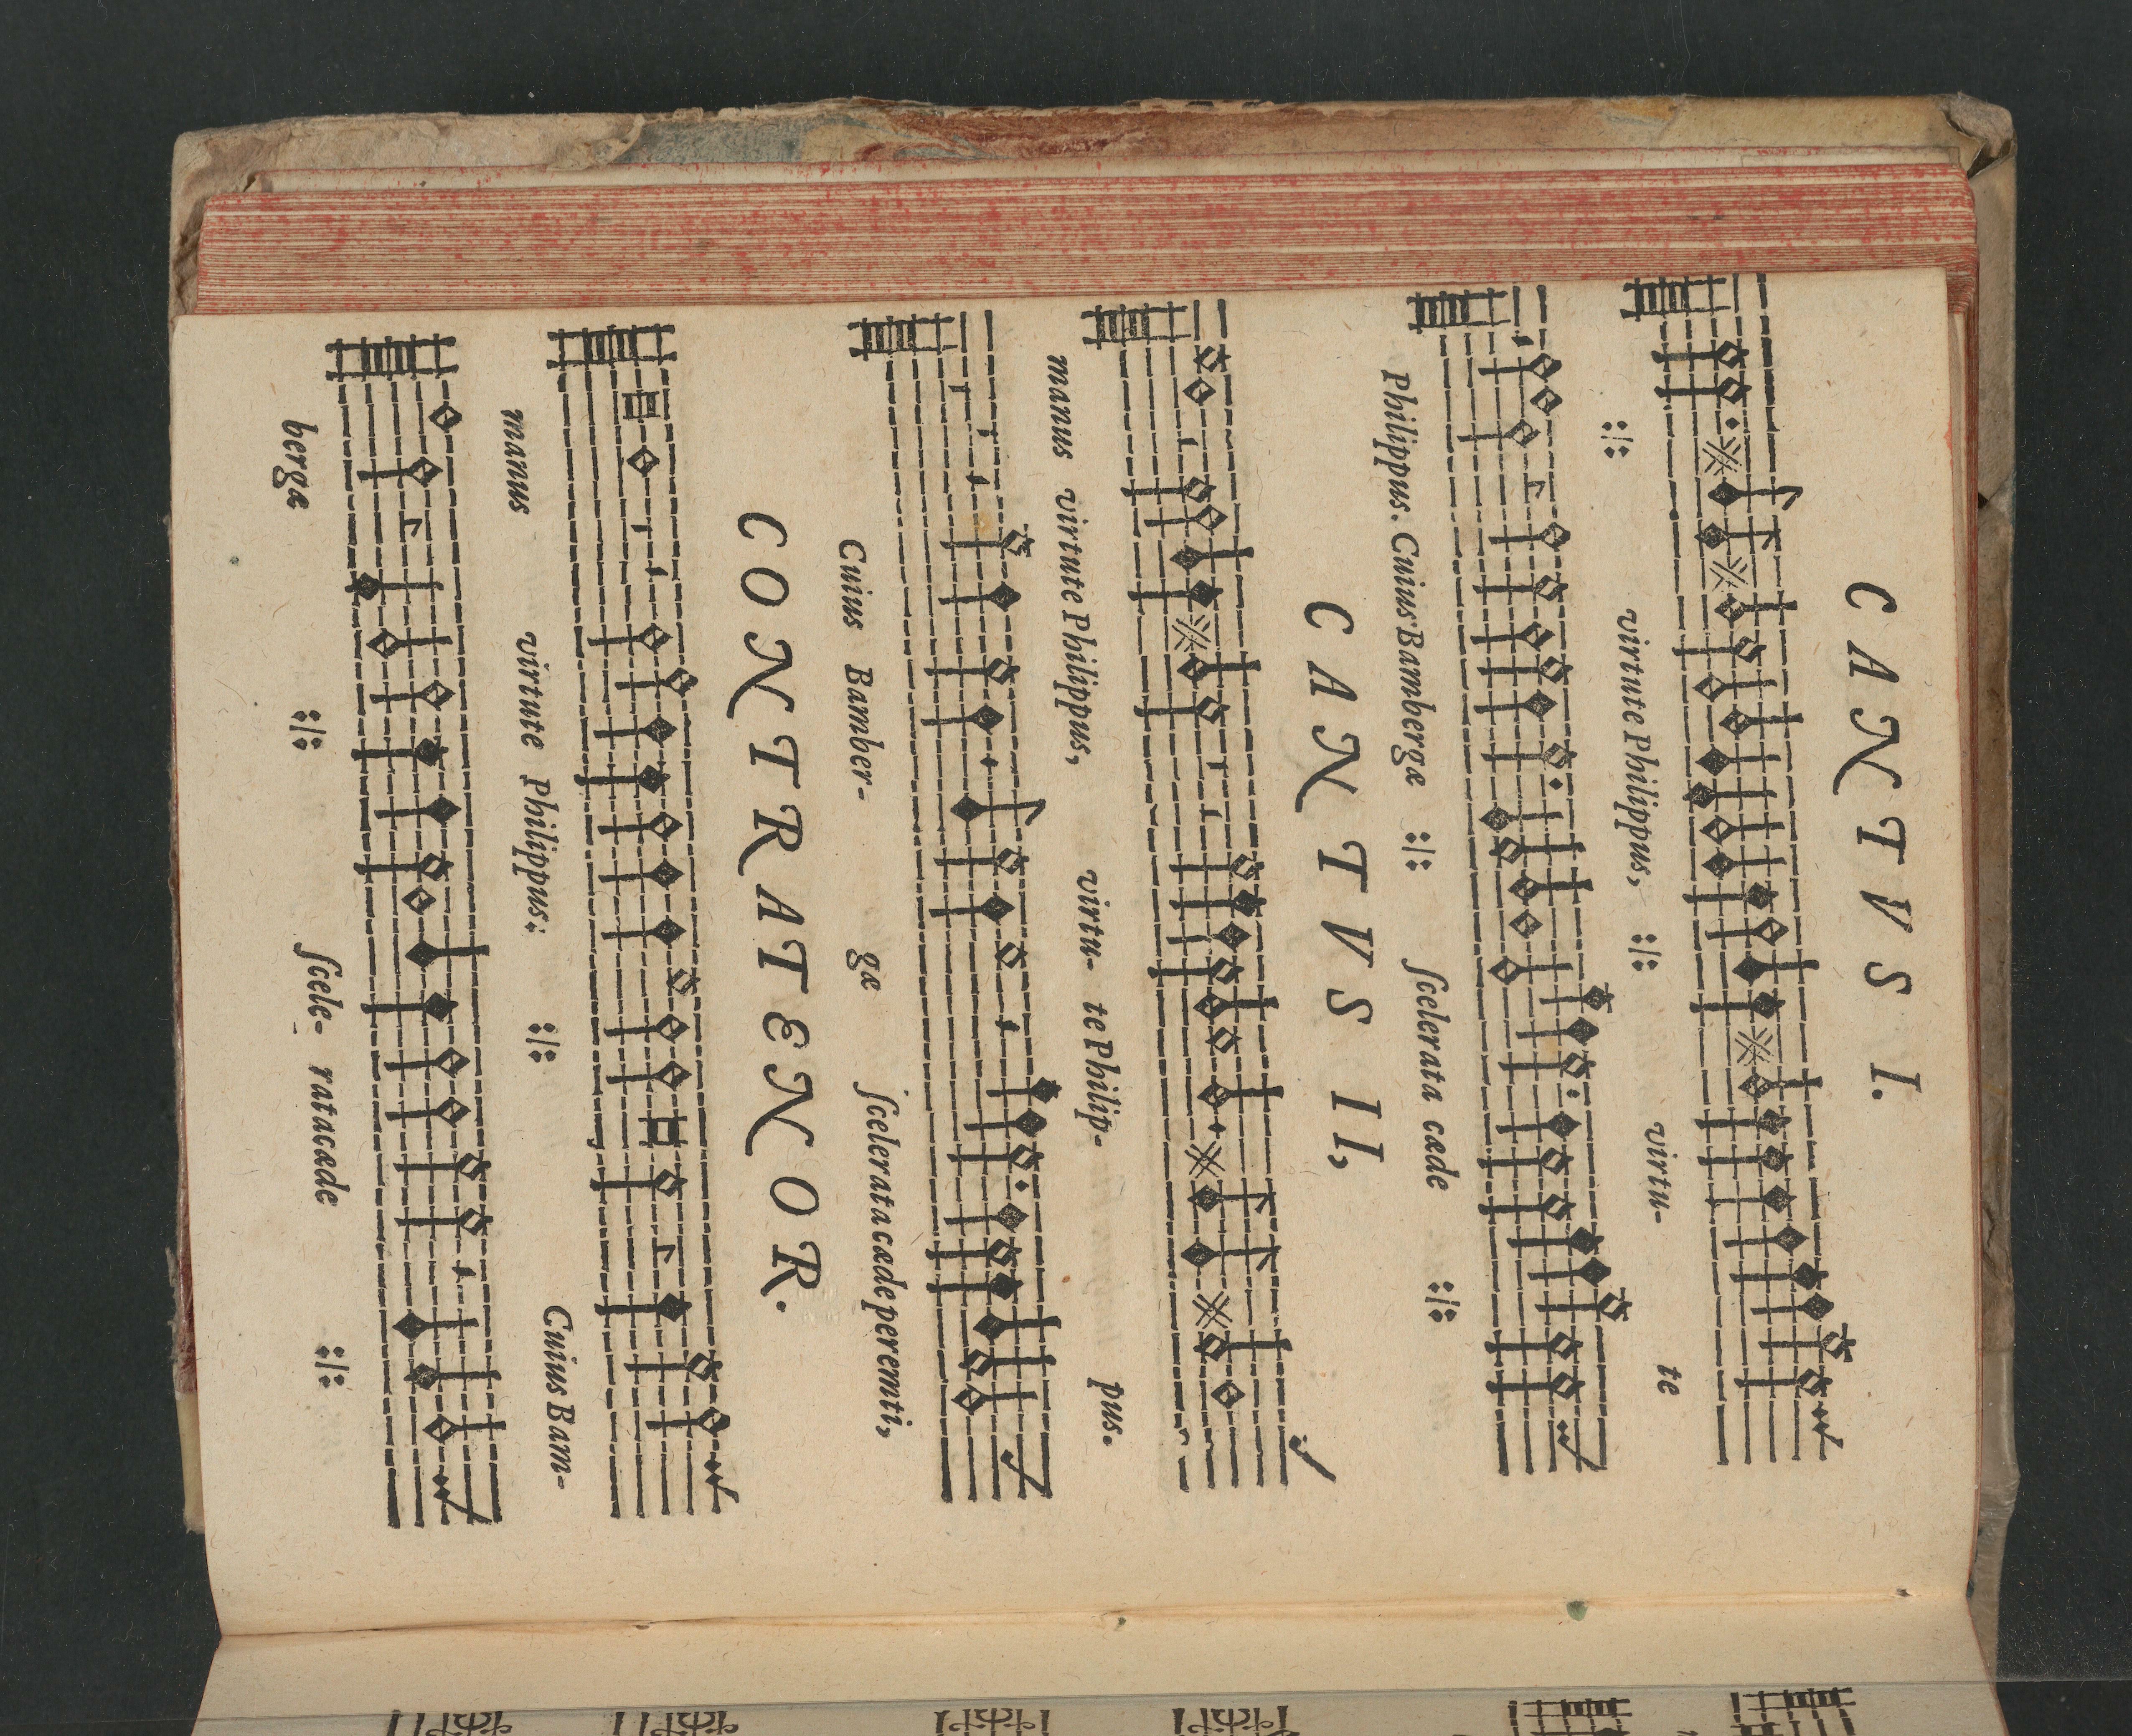 CANTVS I.
:/: virtute Philippus, :/: virtu- te
Philippus. Cuius Bambergæ :/: ſcelerata cæde :/:
CANTVS II,
manus virtute Philippus, virtu- te Philip- pus.
Cuius Bamber- gæ ſcelerata cæde peremti,
CONTRATENOR.
manus virtute Philippus: :/: Cuius Bam-
bergæ :/: ſcele- rata cæde :/: